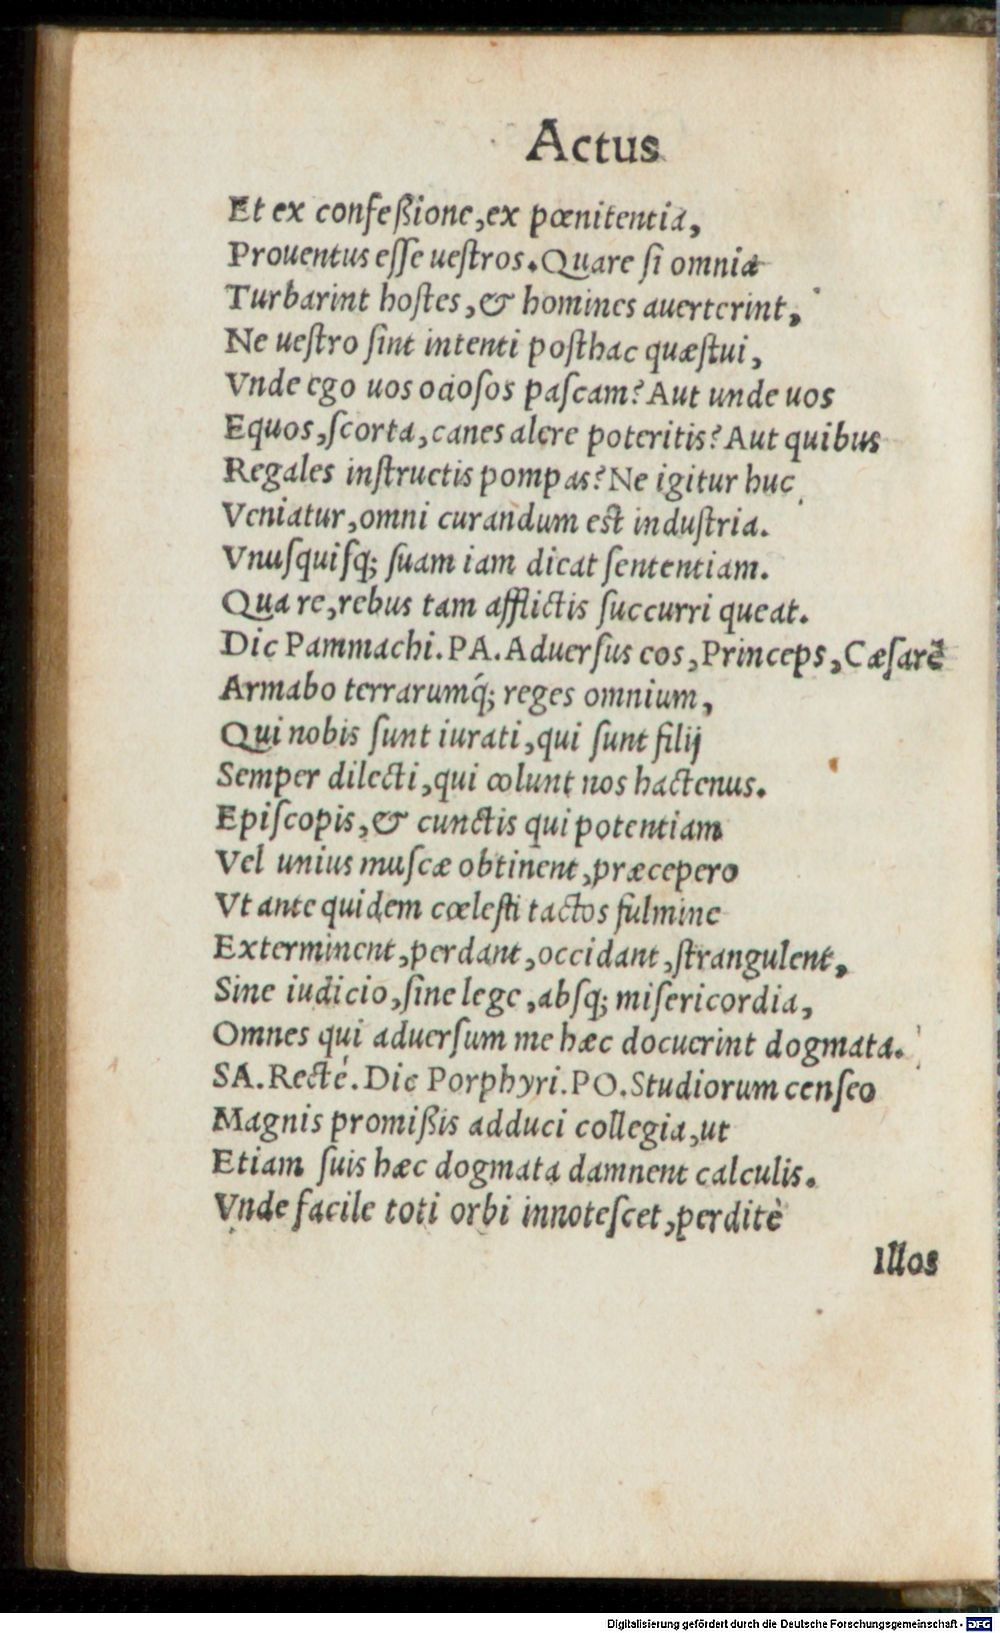 Actus
Et ex confeßione, ex pœnitentia,
Prouentus eſſe ueſtros. Quare ſi omnia
Turbarint hoſtes, & homines auerterint,
Ne ueſtro ſint intenti poſthac quæſtui,
Vnde ego uos ociosos paſcam? Aut unde uos
Equos, ſcorta, canes alere poteritis? Aut quibus
Regales inſtructis pompas? Ne igitur huc
Veniatur, omni curandum eſt induſtria.
Vnuſquiſq; ſuam iam dicat ſententiam.
Qua re, rebus tam afflictis ſuccurri queat.
Dic Pammachi. PA. Aduerſus eos, Princeps, Cæſarẽ
Armabo terrarumq́; reges omnium,
Qui nobis ſunt iurati, qui ſunt filij
Semper dilecti, qui colunt nos hactenus.
Epiſcopis, & cunctis qui potentiam
Vel unius muſcæ obtinent, præcepero
Vt ante quidem cœleſti tactos fulmine
Exterminent, perdant, occidant, ſtrangulent,
Sine iudicio, ſine lege, abſq; miſericordia,
Omnes qui aduerſum me hæc docuerint dogmata.
SA. Recté. Dic Porphyri. PO. Studiorum cenſeo
Magnis promißis adduci collegia, ut
Etiam ſuis hæc dogmata damnent calculis.
Vnde facile toti orbi innoteſcet, perditè
Illos
Digitalisierung gefördert durch die Deutsche Forschungsgemeinschaft - DFG